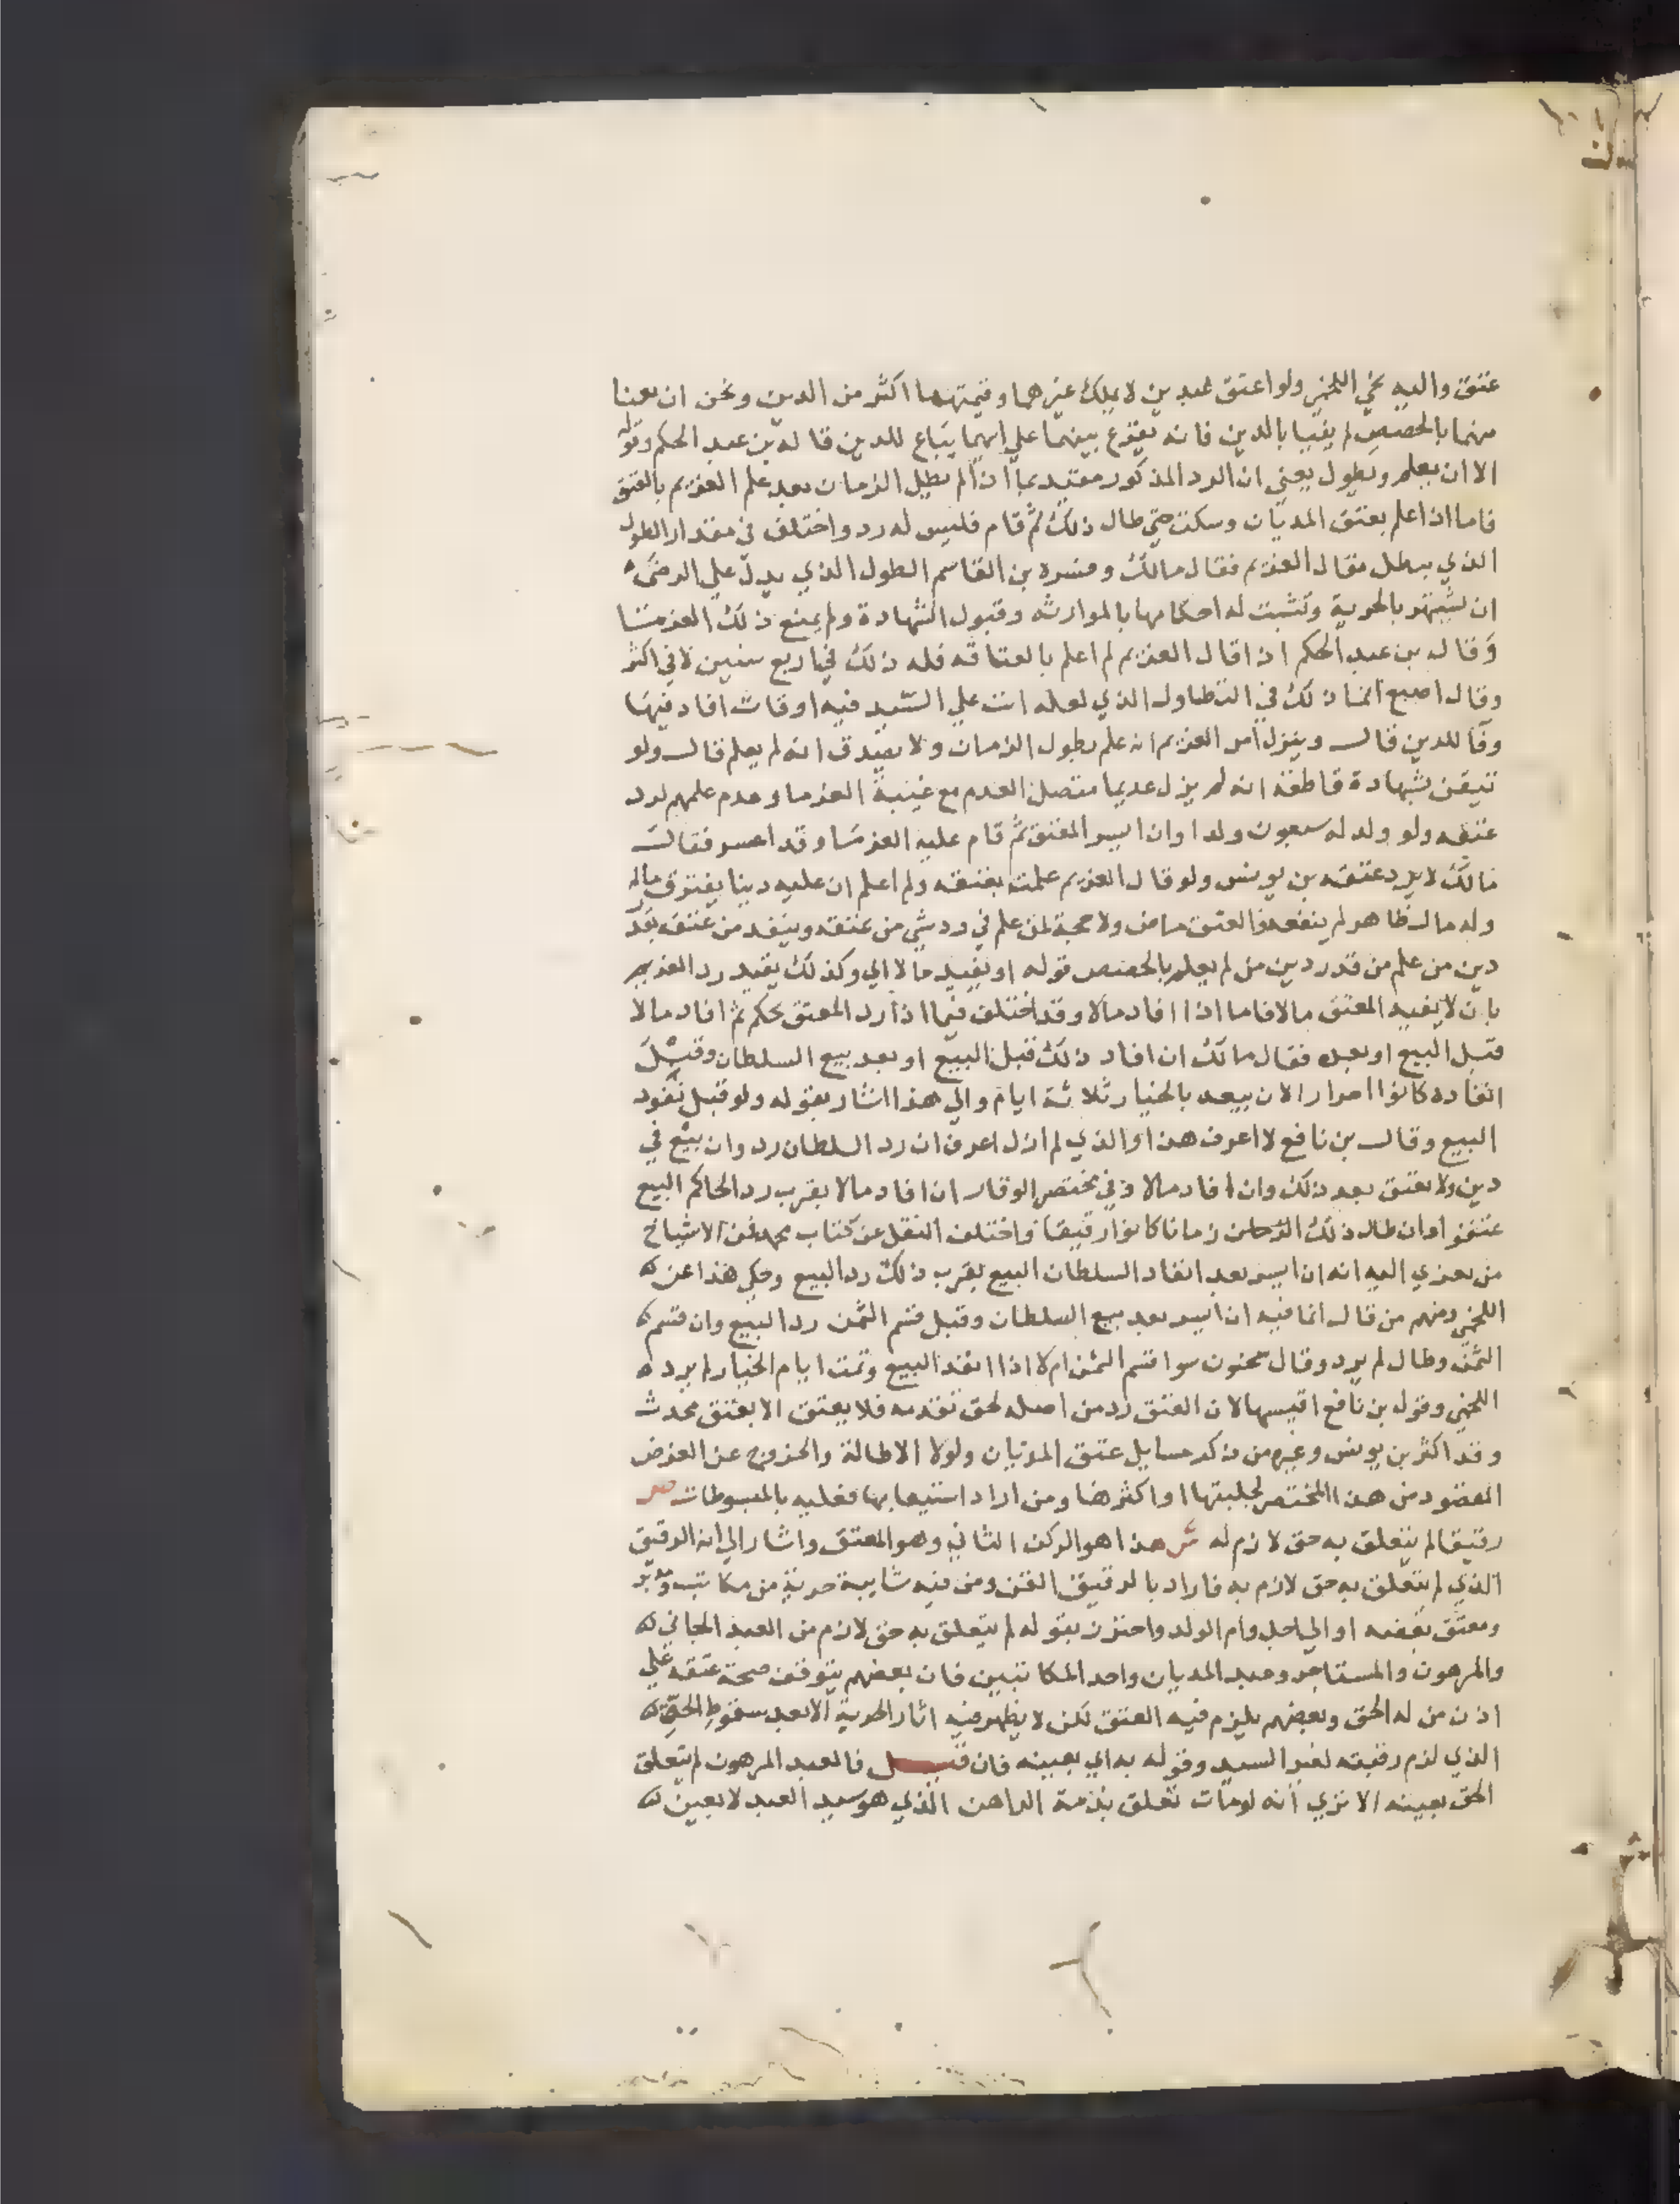 عتق واليه نحي اللخمي ولو اعتق عبدين لا يملك غيرهما وقيمتهما اكثر من الدين ونحن ان بعنا
منهما بالحصص لم يفيا بالدين فانه يقرع بينهما علي ايهما يباع للدين قاله بن عبد الحكم وقوله
الا ان يعلم ويطول يعني ان الرد المذكور مقيد بما اذا لم يطل الزمان بعد علم الغريم بالعتق
فاما اذا علم بعتق المديان وسكت حتي طال ذلك ثم قام فليس له رد واختلف في مقدار الطول
الذي يبطل مقال الغريم فقال مالك وفسره بن القاسم الطول الذي يدل علي الرضي
ان يشتهر بالحرية وتثبت له احكامها بالموارثه وقبول الشهادة ولم يمنع ذلك الغرما
وقال بن عبد الحكم اذا قال الغريم لم اعلم بالعتاقه فله ذلك في اربع سنين لا في اكثر
وقال اصبغ انما ذلك في التطاول الذي لعله اتت علي السيد فيه اوقات افاد فيها
وفا للدين قال وينزل امر الغريم انه علم بطول الزمان ولا يصدق انه لم يعلم قال ولو
تيقن بشهادة قاطعة انه لم يزل عديما متصل العدم مع غيبة الغرما وعدم علمهم لرد
عتقه ولو ولد له سبعون ولدا وان ايسر المعتق ثم قام عليه الغرما وقد اعسر فقال
مالك لا يرد عتقه بن يونس ولو قال الغريم علمت بعتقه ولم اعلم ان عليه دينا يغترق ماله
وله مال ظاهر لم ينفعه فالعتق ماض ولا حجة لمن علم في رد شي من عتقه وينفد من عتقه بقدر
دين من علم من قدر دين من لم يعلم بالحصص قوله او يفيد مالا اي وكذلك يقيد رد الغريم
بان لا يفيد المعتق مالا فاما اذا افاد مالا وقد اختلف فيما اذا رد المعتق بحكم ثم افاد مالا
قبل البيع او بعده فقال مالك ان افاد ذلك قبل البيع او بعد بيع السلطان وقبل
انفاده كانوا احرارا لان بيعه بالخيار ثلاثة ايام والي هذا اشار بقوله ولو قبل نفود
البيع وقال بن نافع لا اعرف هذا والذي لم ازل اعرف ان رد السلطان رد وان بيع في
دين ولا يعتق بعد ذلك وان افاد مالا وفي مختصر الوقار ان افاد مالا بقرب رد الحاكم البيع
عتقوا وان طال ذلك زمانا كانوا رقيقا واختلف النقل عن كتاب محمد فمن الاشياخ
من يعزي اليه انه ان ايسر بعد انفاد السلطان البيع بقرب ذلك رد البيع وحكي هذا عن
اللخمي ومنهم من قال انما فيه ان ايسر بعد بيع السلطان وقبل قسم الثمن رد البيع وان قسم
الثمن وطال لم يرد وقال سحنون سوا قسم الثمن ام لا اذا انفد البيع وتمت ايام الخيار لم يرد
اللخمي وقول بن نافع اقيسها لان العتق رد من اصله لحق تقدمه فلا يعتق الا بعتق محدث
وقد اكثر بن يونس وغيره من ذكر مسايل عتق المديان ولولا الاطالة والخروج عن الغرض
المقصود من هذا المختصر لجلبتها او اكثرها ومن اراد استيعابها فعليه بالمبسوطات ص
رقيقا لم يتعلق به حق لازم له ش هذا هو الركن الثاني وهو المعتق واشار الي انه الرقيق
الذي لم يتعلق به حق لازم به فاراد بالرقيق القن ومن فيه شايبة حرية من مكاتب ومدبر
ومعتق بعضه او الي اجل وام الولد واحترز بقوله لم يتعلق به حق لازم من العبد الجاني
والمرهون والمستاجر وعبد المديان واحد المكاتبين فان بعضهم يتوقف صحة عتقه علي
اذن من له الحق وبعضهم يلزم فيه العتق لكن لا يظهر فيه اثار الحرية الا بعد سقوط الحق
الذي لزم رقبته لغير السيد وقوله به اي بعينه فان قيل فالعبد المرهون لم يتعلق
الحق بعينه الا تري انه لو مات تعلق بذمة الراهن الذي هو سيد العبد لا بعين